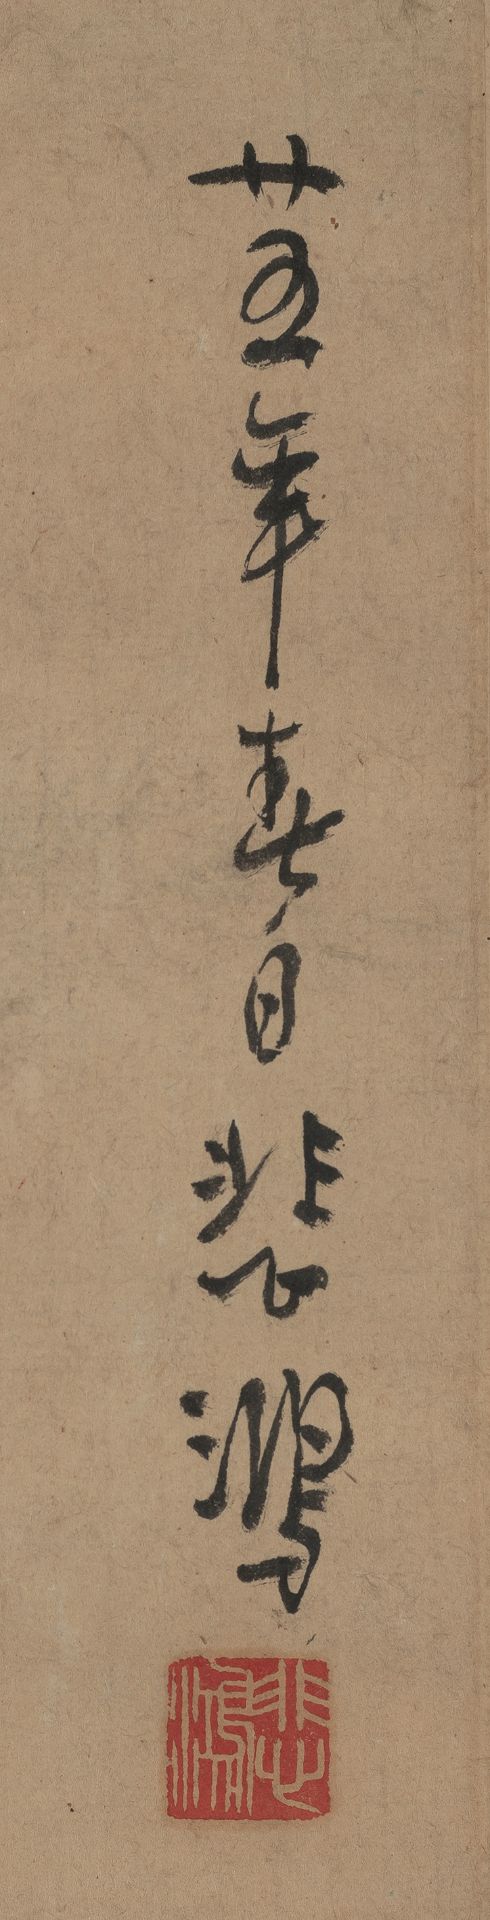 廿五年春日悲鴻
悲鴻